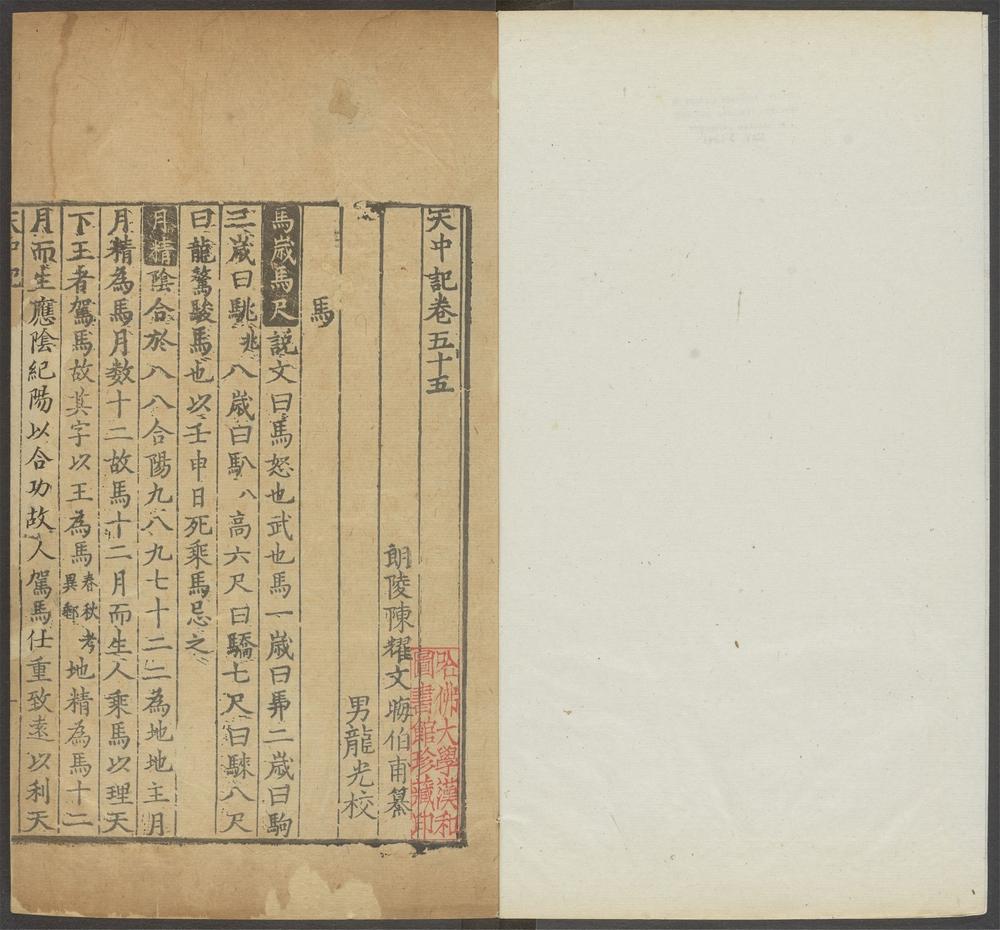 天中記卷五十五
朗陵陳耀文晦伯甫纂
男龍光校
馬
馬歲馬尺說文曰馬怒也武也馬一歲曰馬二歲曰駒
三歲曰駣兆八歲曰馭八高六尺曰驕七尺曰騋八尺
曰龍驁駿馬也以壬申日死乘馬忌之
月精陰合於八八合陽九八九七十二二為地地主月
月精為馬月数十二故馬十二月而生人乘馬以理天
下王者駕馬故其字以王為馬春秋考異郵地精為馬十二
月而生應陰紀陽以合功故人駕馬任重致遠以利天
天中記
哈佛大學漢和圖書館珍藏印